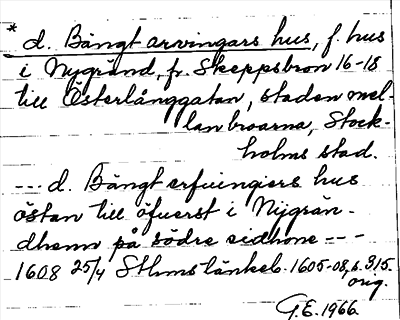 * d. Bängt arvingars hus, f. hus
i Nygränd, fr. Skeppsbron 16-18
till Österlånggatan, staden mel-
lan broarna, Stock-
holms stad.
--- d. Bängt erfuingiers hus
östan till öfuerst i Nijgrän-
dhenn på södre sidhone ---
1608 25/4 Sthms tänkeb. 1605-08, s. 315.
orig.
G.E. 1966.